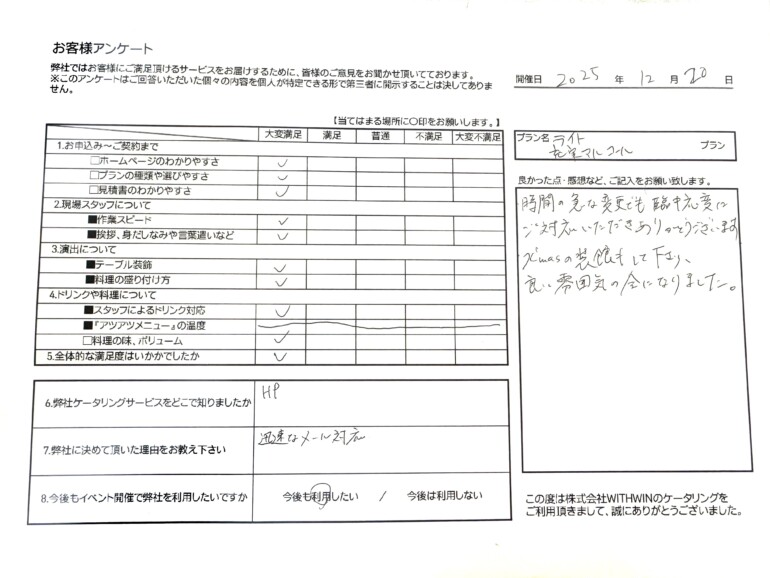 お客様アンケート
弊社ではお客様にご満足頂けるサービスをお届けするために、皆様のご意見をお聞かせ頂いております。
※このアンケートはご回答いただいた個々の内容を個人が特定できる形で第三者に開示することは決してありま
せん。
開催日 2025 年 12 月 20 日
【当てはまる場所に〇印をお願いします。】
大変満足 満足 普通 不満足 大変不満足
1.お申込み～ご契約まで
□ホームページのわかりやすさ ✓
□プランの種類や選びやすさ ✓
□見積書のわかりやすさ ✓
2.現場スタッフについて
■作業スピード ✓
■挨拶、身だしなみや言葉遣いなど ✓
3.演出について
■テーブル装飾 ✓
■料理の盛り付け方 ✓
4.ドリンクや料理について
■スタッフによるドリンク対応 ✓
■『アツアツメニュー』の温度
□料理の味、ボリューム ✓
5.全体的な満足度はいかがでしたか ✓
6.弊社ケータリングサービスをどこで知りましたか HP
7.弊社に決めて頂いた理由をお教え下さい 迅速なメール対応
8.今後もイベント開催で弊社を利用したいですか 今後も利用したい / 今後は利用しない
プラン名 ライト プラン
アルコール
良かった点・感想など、ご記入をお願い致します。
時間の急な変更でも臨機応変に
ご対応いただきありがとうございます
X'masの装飾もして下さり、
良い雰囲気の会になりました。
この度は株式会社WITHWINのケータリングを
ご利用頂きまして、誠にありがとうございました。